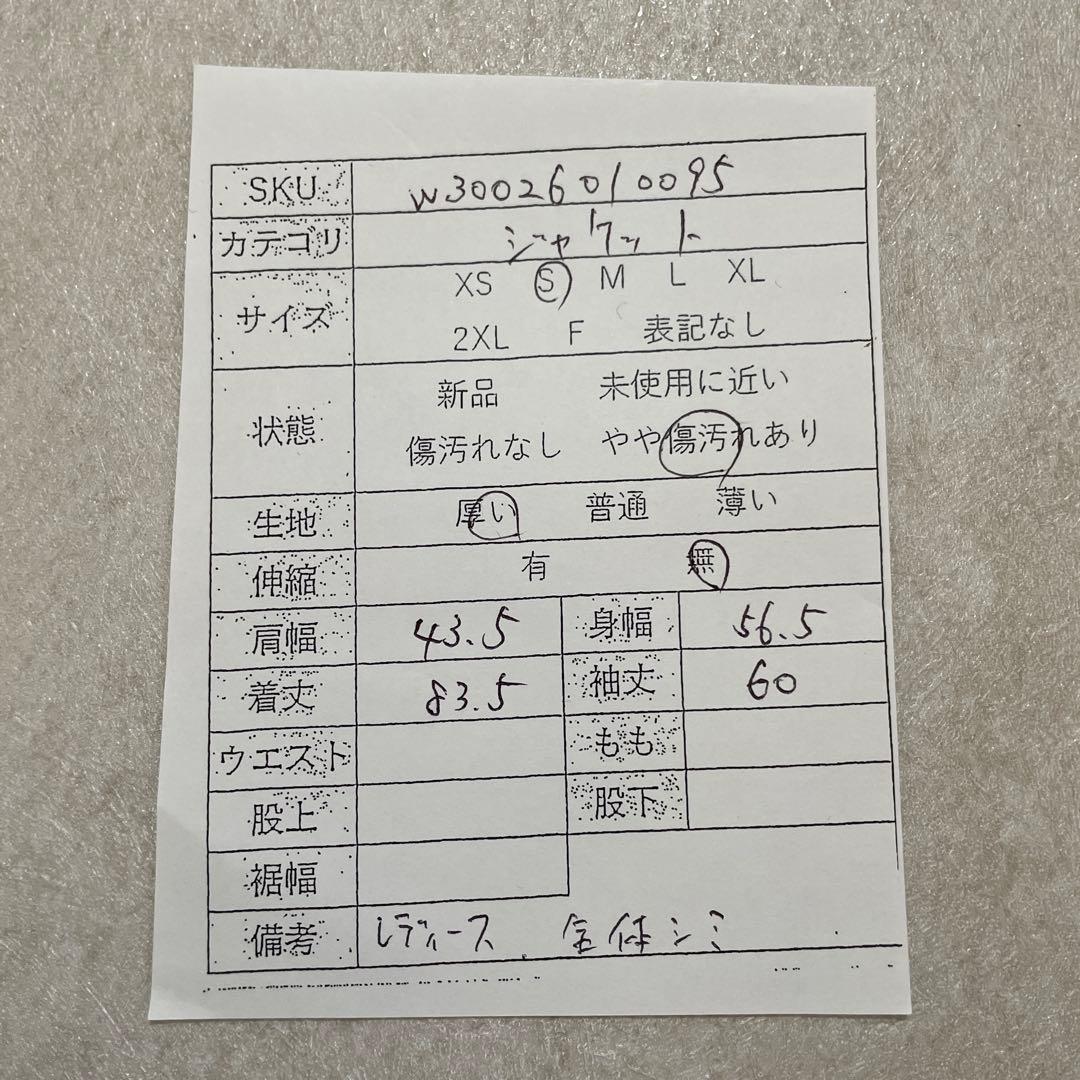 SKU w30026010095
カテゴリ ジャケット
サイズ XS S M L XL
2XL F 表記なし
状態 新品 未使用に近い
傷汚れなし やや傷汚れあり
生地 厚い 普通 薄い
伸縮 有 無
肩幅 43.5 身幅 56.5
着丈 83.5 袖丈 60
ウエスト もも
股上 股下
裾幅
備考 レディース 全体シミ